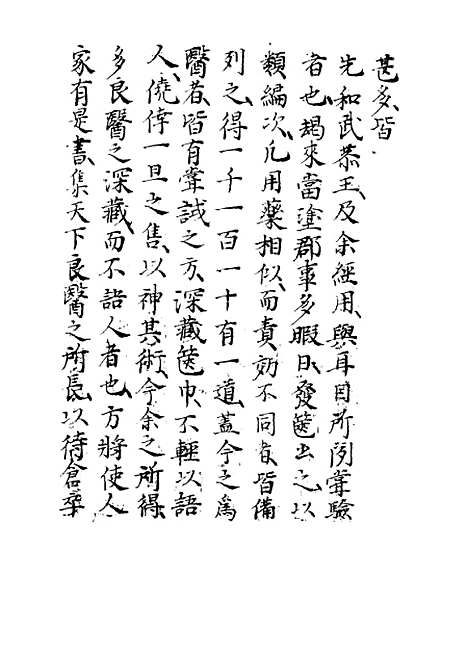 甚多、皆
先和武恭王、及余經用、與耳目所聞嘗驗
者也、朅來當塗郡事多暇日、發篋出之、以
類編次、凡用藥相似、而責効不同者、皆備
列之、得一千一百一十有一道、蓋今之爲
醫者、皆有嘗試之方、深藏篋中、不輕以語
人、僥倖一旦之售、以神其術、今余之所得、
多良醫之深藏、而不語人者也、方將使人
家有是書、集天下良醫之所長、以待倉卒